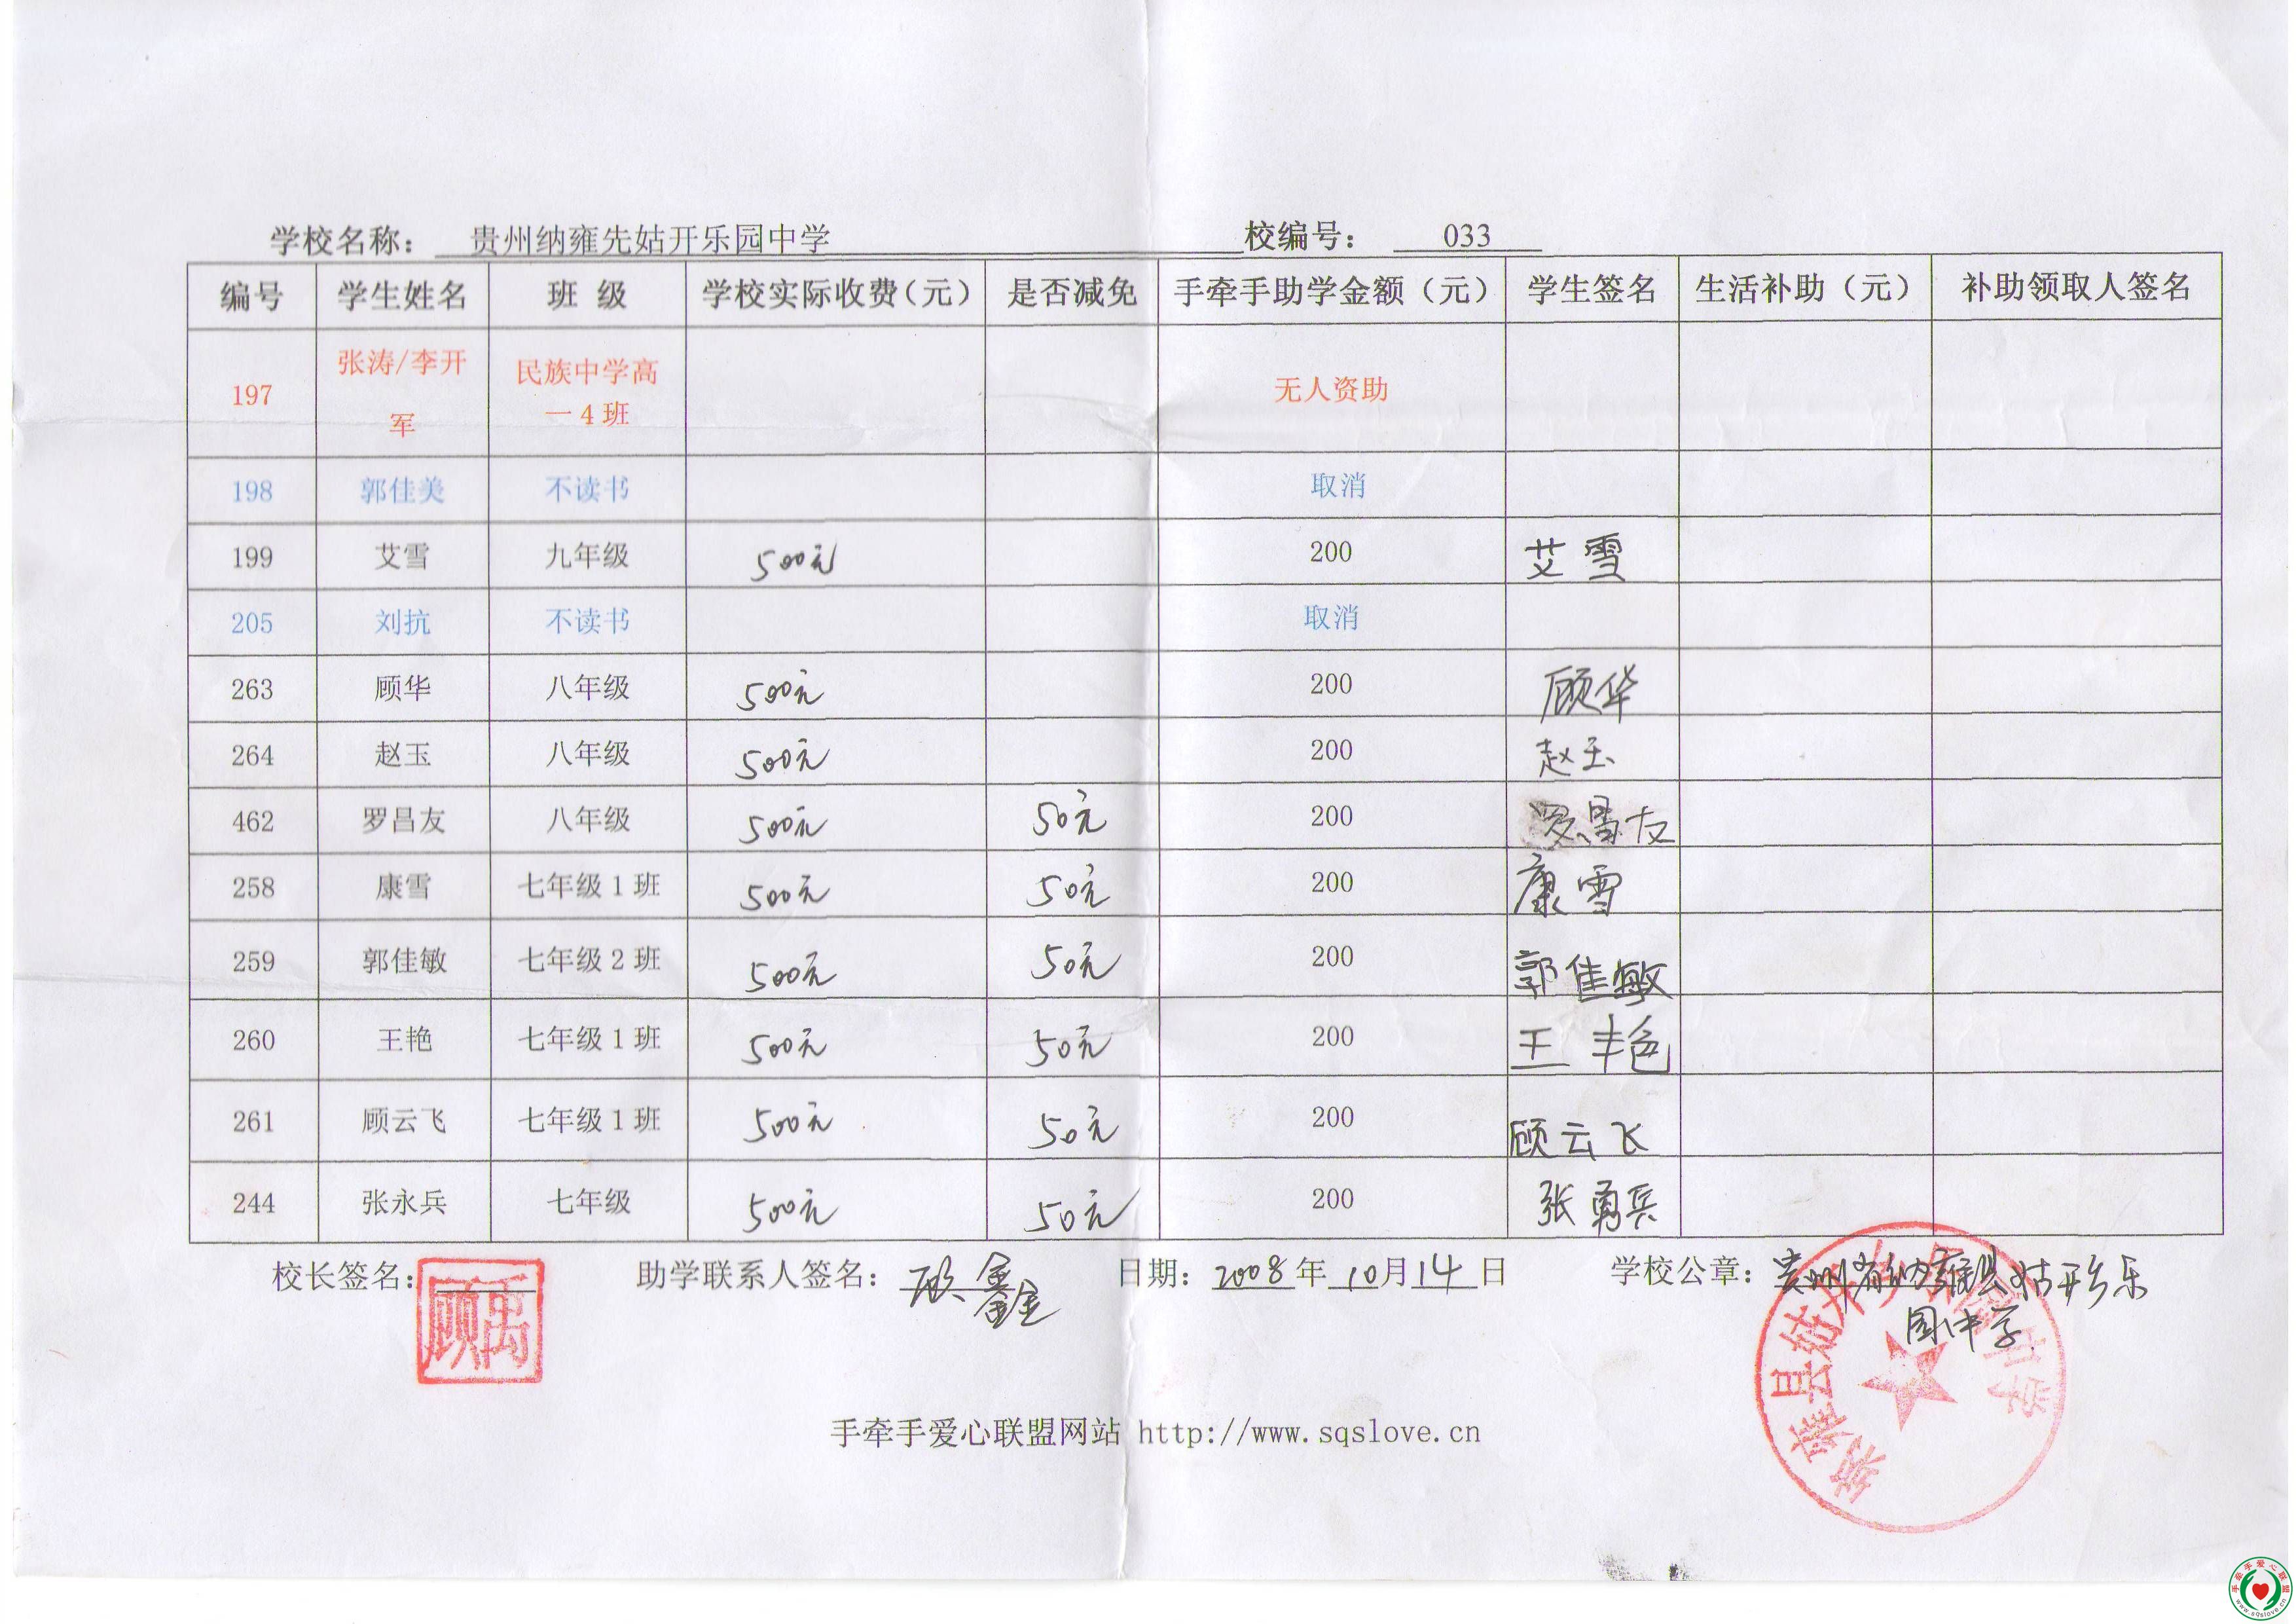 学校名称： 贵州纳雍先姑开乐园中学 校编号： 033
编号 学生姓名 班 级 学校实际收费（元） 是否减免 手牵手助学金额（元） 学生签名 生活补助（元） 补助领取人签名
197 张涛/李开军 民族中学高一4班 无人资助
198 郭佳美 不读书 取消
199 艾雪 九年级 500元 200 艾雪
205 刘抗 不读书 取消
263 顾华 八年级 500元 200 顾华
264 赵玉 八年级 500元 200 赵玉
462 罗昌友 八年级 500元 50元 200 罗昌友
258 康雪 七年级1班 500元 50元 200 康雪
259 郭佳敏 七年级2班 500元 50元 200 郭佳敏
260 王艳 七年级1班 500元 50元 200 王艳
261 顾云飞 七年级1班 500元 50元 200 顾云飞
244 张永兵 七年级 500元 50元 200 张勇兵
校长签名： 顾禹 助学联系人签名： 顾鑫 日期：2008年10月14日 学校公章：贵州省纳雍县姑开乡乐
园中学
纳雍县姑开乡 中学
手牵手爱心联盟网站 http://www.sqslove.cn
手牵手爱心联盟
www.sqslove.cn